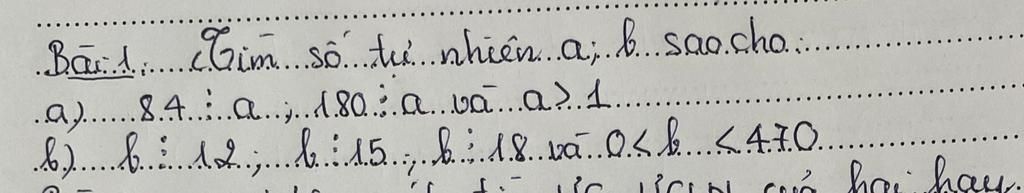 Bài 1: Tìm số tự nhiên a; b sao cho:
a) 84 ⋮ a ; 180 ⋮ a và a > 1
b) b ⋮ 12 ; b ⋮ 15 ; b ⋮ 18 và 0 < b < 470